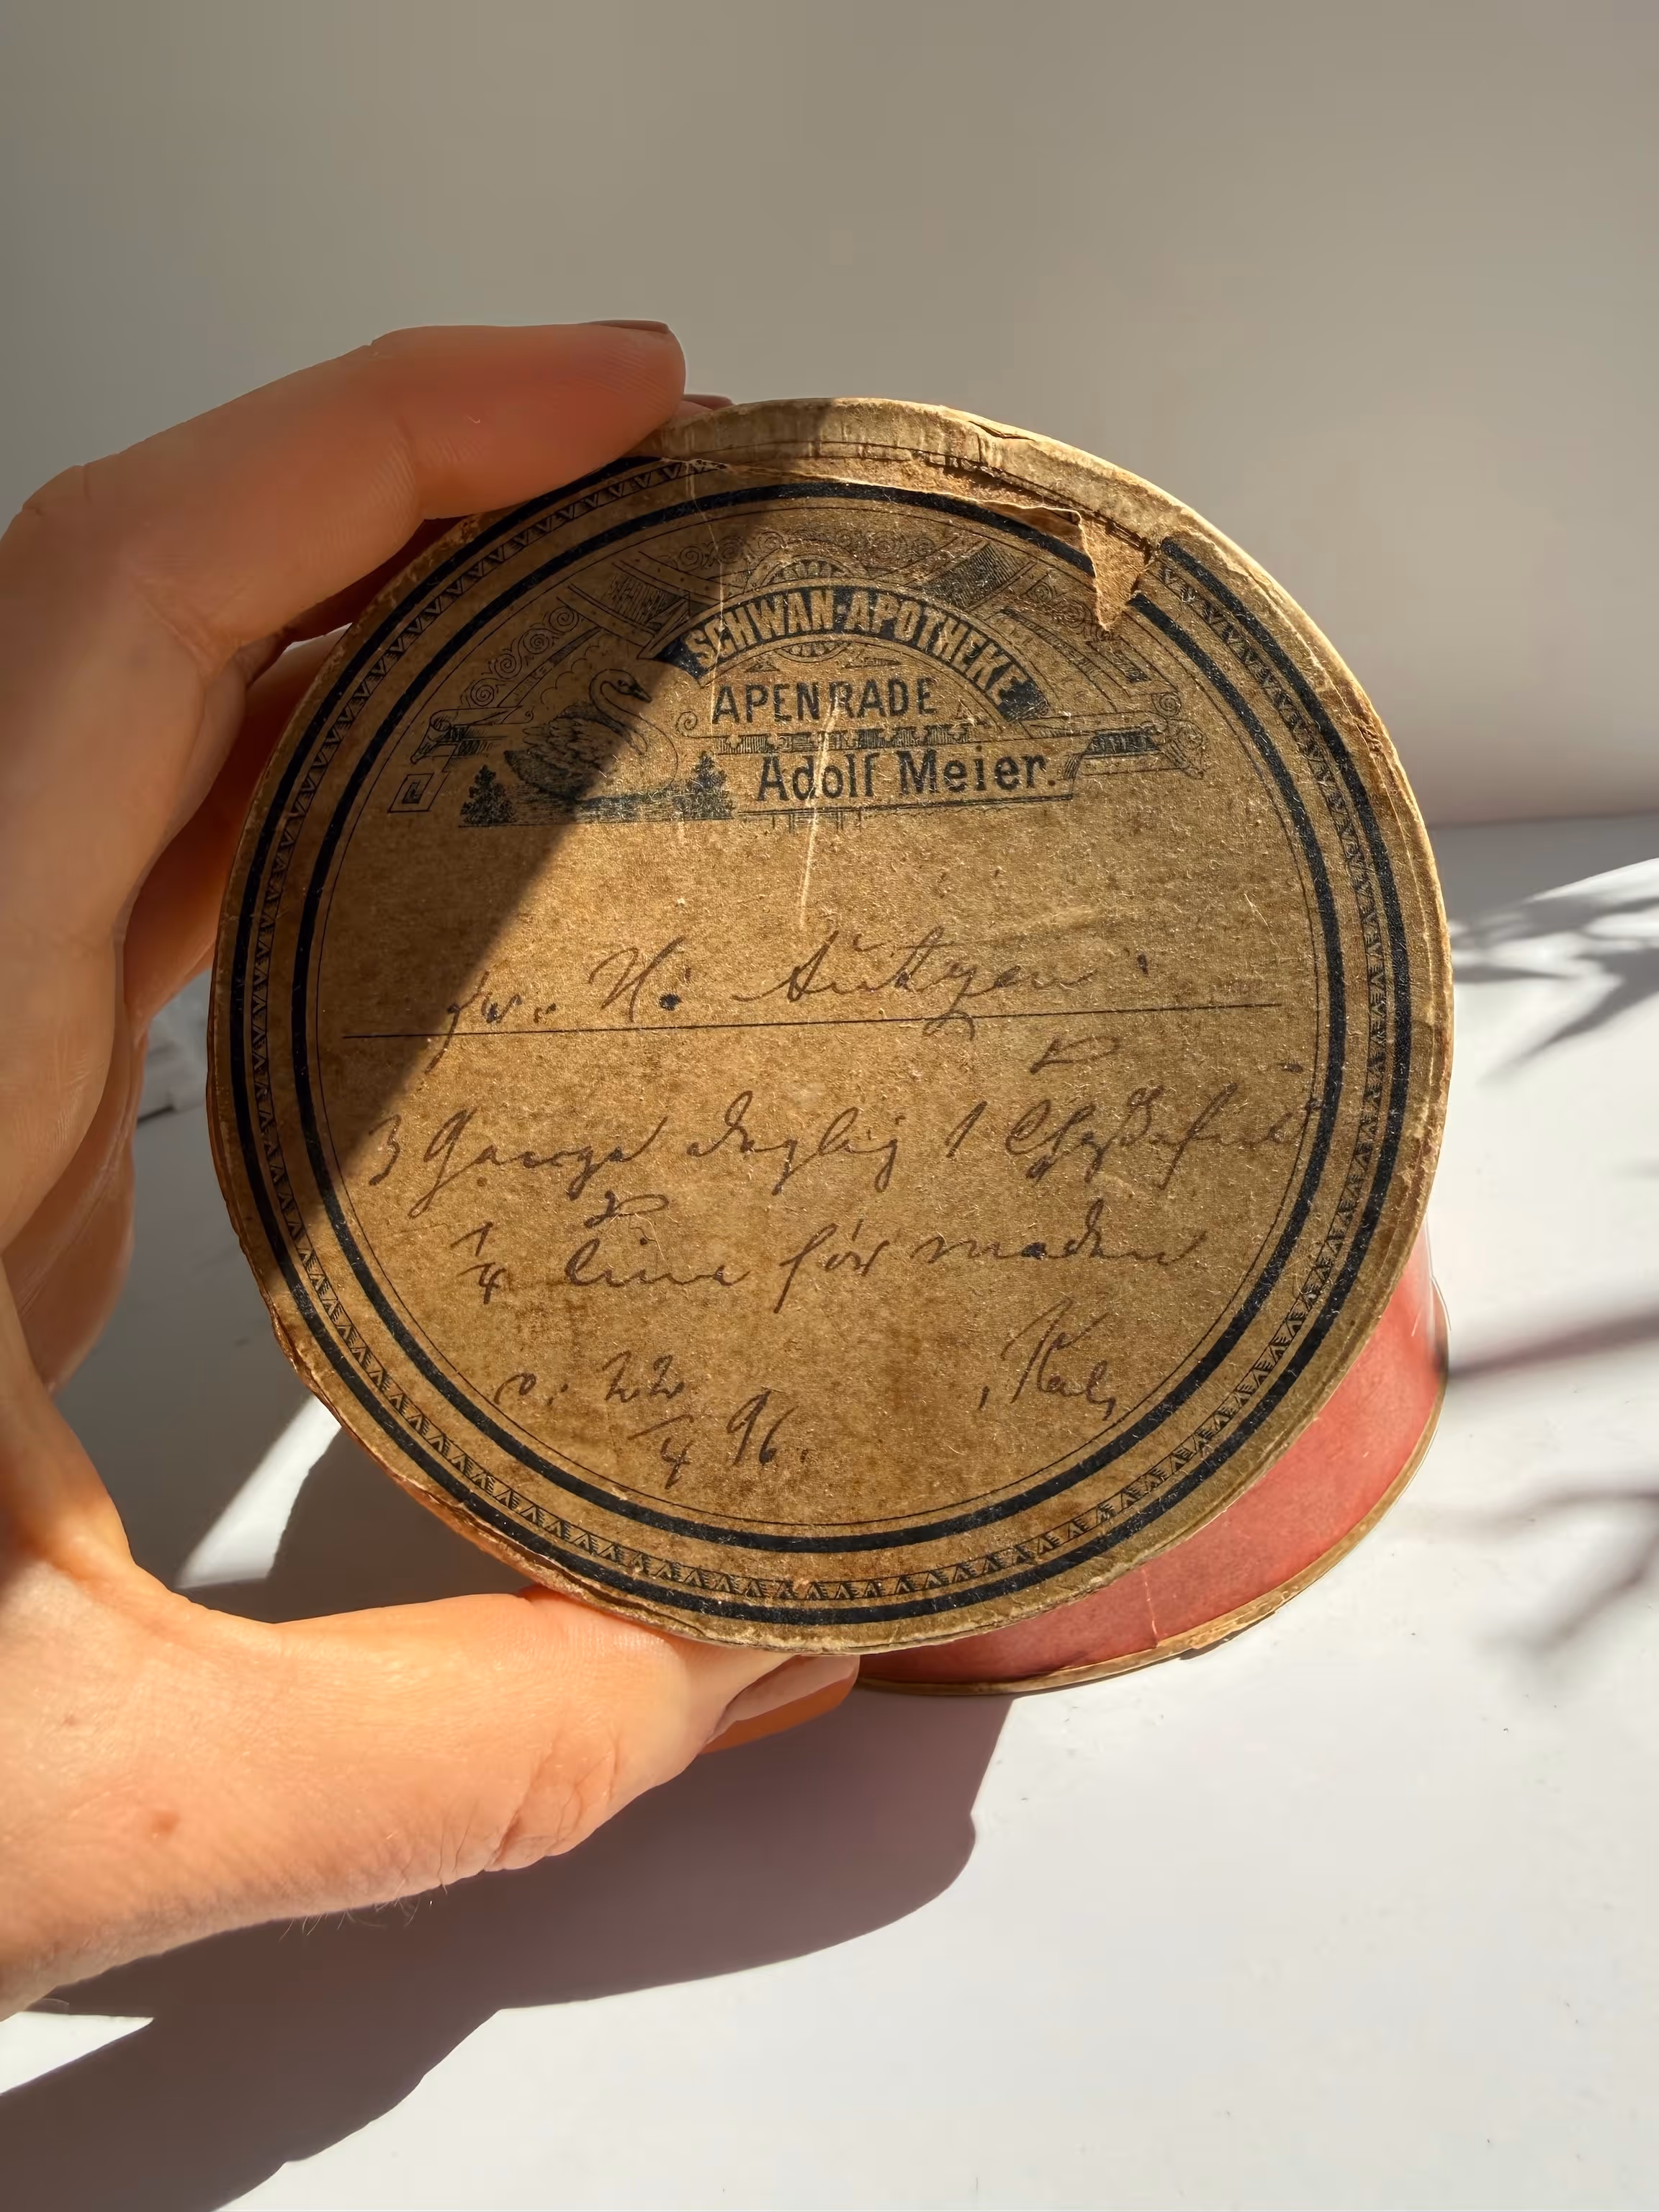 SCHWAN-APOTHEKE
APENRADE
Adolf Meier.
H.
3 Gange daglig 1
1/4 time før maden
22/4 96.